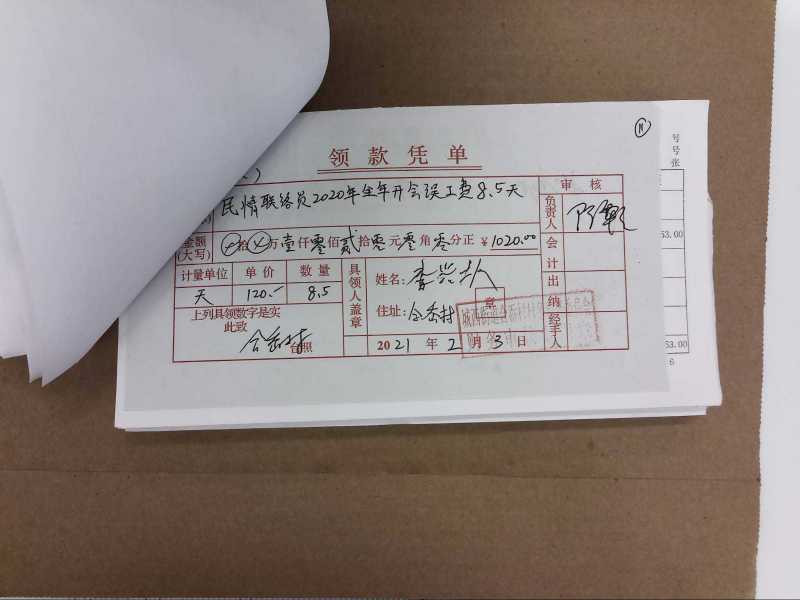 号
号
张
11
领款凭单
民情联络员2020年全年开会误工费8.5天
审核
负责人
金额(大写) 拾 万壹仟零佰贰拾零元零角零分正 ¥1020.00
会计
53.00
计量单位 单价 数量
天 120.- 8.5
具领人盖章
姓名:李兴
住址: 村
出纳
上列具领数字是实
此致
台照
2021年2月3日
经手人
53.00
6